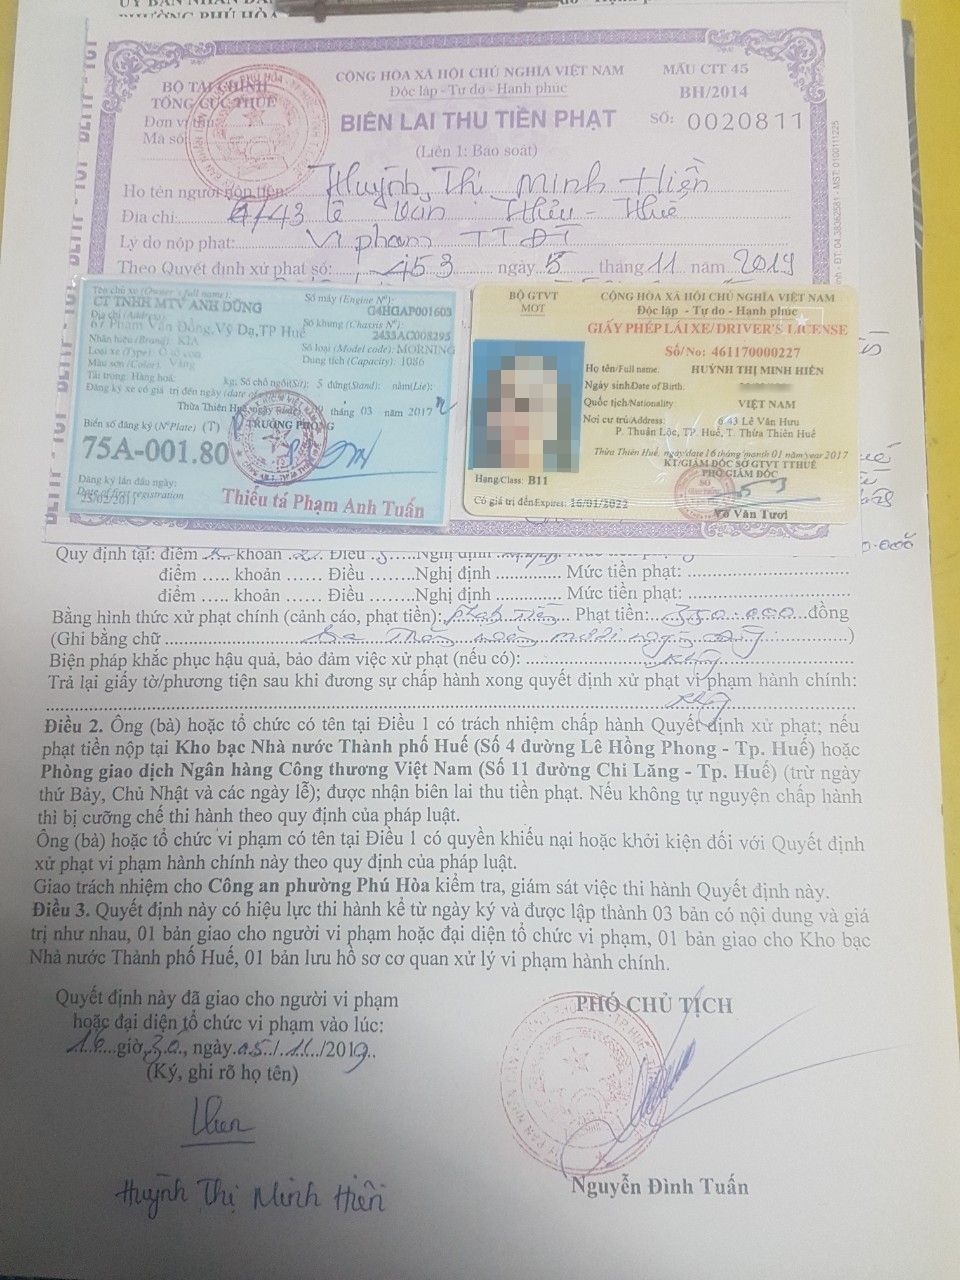 PHƯỜNG PHÚ HÒA
BỘ TÀI CHÍNH
TỔNG CỤC THUẾ
Đơn vị thu:
Mã số:
CỘNG HÒA XÃ HỘI CHỦ NGHĨA VIỆT NAM
Độc lập - Tự do - Hạnh phúc
BIÊN LAI THU TIỀN PHẠT
(Liên 1: Báo soát)
MẪU CTT 45
BH/2014
SỐ: 0020811
Họ tên người nộp tiền: Huỳnh Thị Minh Hiền
Địa chỉ: 4/43 Lê Văn Hưu - Huế
Lý do nộp phạt: Vi phạm TTĐT
Theo Quyết định xử phạt số: 453 ngày 5 tháng 11 năm 2019
Tên chủ xe (Owner's full name):
CT TNHH MTV ANH DŨNG
Địa chỉ (Address):
67 Phạm Văn Đồng,Vỹ Dạ,TP Huế
Nhãn hiệu (Brand): KIA
Loại xe (Type): Ô tô con
Màu sơn (Color): Vàng
Tải trọng: Hàng hoá: kg; Số chỗ ngồi(Sit): 5 đứng(Stand): nằm(Lie):
Đăng ký xe có giá trị đến ngày (date
Số máy (Engine Nº):
G4HGAP001603
Số khung (Chassis Nº)
2433AC008295
Số loại (Model code): MORNING
Dung tích (Capacity): 1086
Thừa Thiên Huế, ngày tháng 03 năm 2017
Biển số đăng ký (Nº Plate) (T)
TRƯỞNG PHÒNG
75A-001.80
Đăng ký lần đầu ngày:
Date of first registration
Thiếu tá Phạm Anh Tuấn
BỘ GTVT
MOT
CỘNG HÒA XÃ HỘI CHỦ NGHĨA VIỆT NAM
Độc lập - Tự do - Hạnh phúc
GIẤY PHÉP LÁI XE/DRIVER'S LICENSE
Số/No: 461170000227
Họ tên/Full name: HUỲNH THỊ MINH HIỀN
Ngày sinh/Date of Birth:
Quốc tịch/Nationality: VIỆT NAM
Nơi cư trú/Address: 43 Lê Văn Hưu
P. Thuận Lộc, TP. Huế, T. Thừa Thiên Huế
Thừa Thiên Huế, ngày/date 16 tháng/month 01 năm/year 2017
KT/GIÁM ĐỐC SỞ GTVT TTHUẾ
PHÓ GIÁM ĐỐC
Hạng/Class: B11
Có giá trị đến/Expires: 16/01/2022
Võ Văn Tươi
Quy định tại: điểm khoản Điều Nghị định Mức tiền phạt:
điểm ..... khoản ...... Điều ........Nghị định ............ Mức tiền phạt:
điểm ..... khoản ...... Điều ........Nghị định ............ Mức tiền phạt:
Bằng hình thức xử phạt chính (cảnh cáo, phạt tiền): phạt tiền Phạt tiền: 350.000 đồng
(Ghi bằng chữ Ba trăm năm mươi ngàn đồng )
Biện pháp khắc phục hậu quả, bảo đảm việc xử phạt (nếu có):
Trả lại giấy tờ/phương tiện sau khi đương sự chấp hành xong quyết định xử phạt vi phạm hành chính:
Điều 2. Ông (bà) hoặc tổ chức có tên tại Điều 1 có trách nhiệm chấp hành Quyết định xử phạt; nếu
phạt tiền nộp tại Kho bạc Nhà nước Thành phố Huế (Số 4 đường Lê Hồng Phong - Tp. Huế) hoặc
Phòng giao dịch Ngân hàng Công thương Việt Nam (Số 11 đường Chi Lăng - Tp. Huế) (trừ ngày
thứ Bảy, Chủ Nhật và các ngày lễ); được nhận biên lai thu tiền phạt. Nếu không tự nguyện chấp hành
thì bị cưỡng chế thi hành theo quy định của pháp luật.
Ông (bà) hoặc tổ chức vi phạm có tên tại Điều 1 có quyền khiếu nại hoặc khởi kiện đối với Quyết định
xử phạt vi phạm hành chính này theo quy định của pháp luật.
Giao trách nhiệm cho Công an phường Phú Hòa kiểm tra, giám sát việc thi hành Quyết định này.
Điều 3. Quyết định này có hiệu lực thi hành kể từ ngày ký và được lập thành 03 bản có nội dung và giá
trị như nhau, 01 bản giao cho người vi phạm hoặc đại diện tổ chức vi phạm, 01 bản giao cho Kho bạc
Nhà nước Thành phố Huế, 01 bản lưu hồ sơ cơ quan xử lý vi phạm hành chính.
Quyết định này đã giao cho người vi phạm
hoặc đại diện tổ chức vi phạm vào lúc:
16 giờ 30, ngày 05/11/2019.
(Ký, ghi rõ họ tên)
Hien
Huỳnh Thị Minh Hiền
PHÓ CHỦ TỊCH
Nguyễn Đình Tuấn